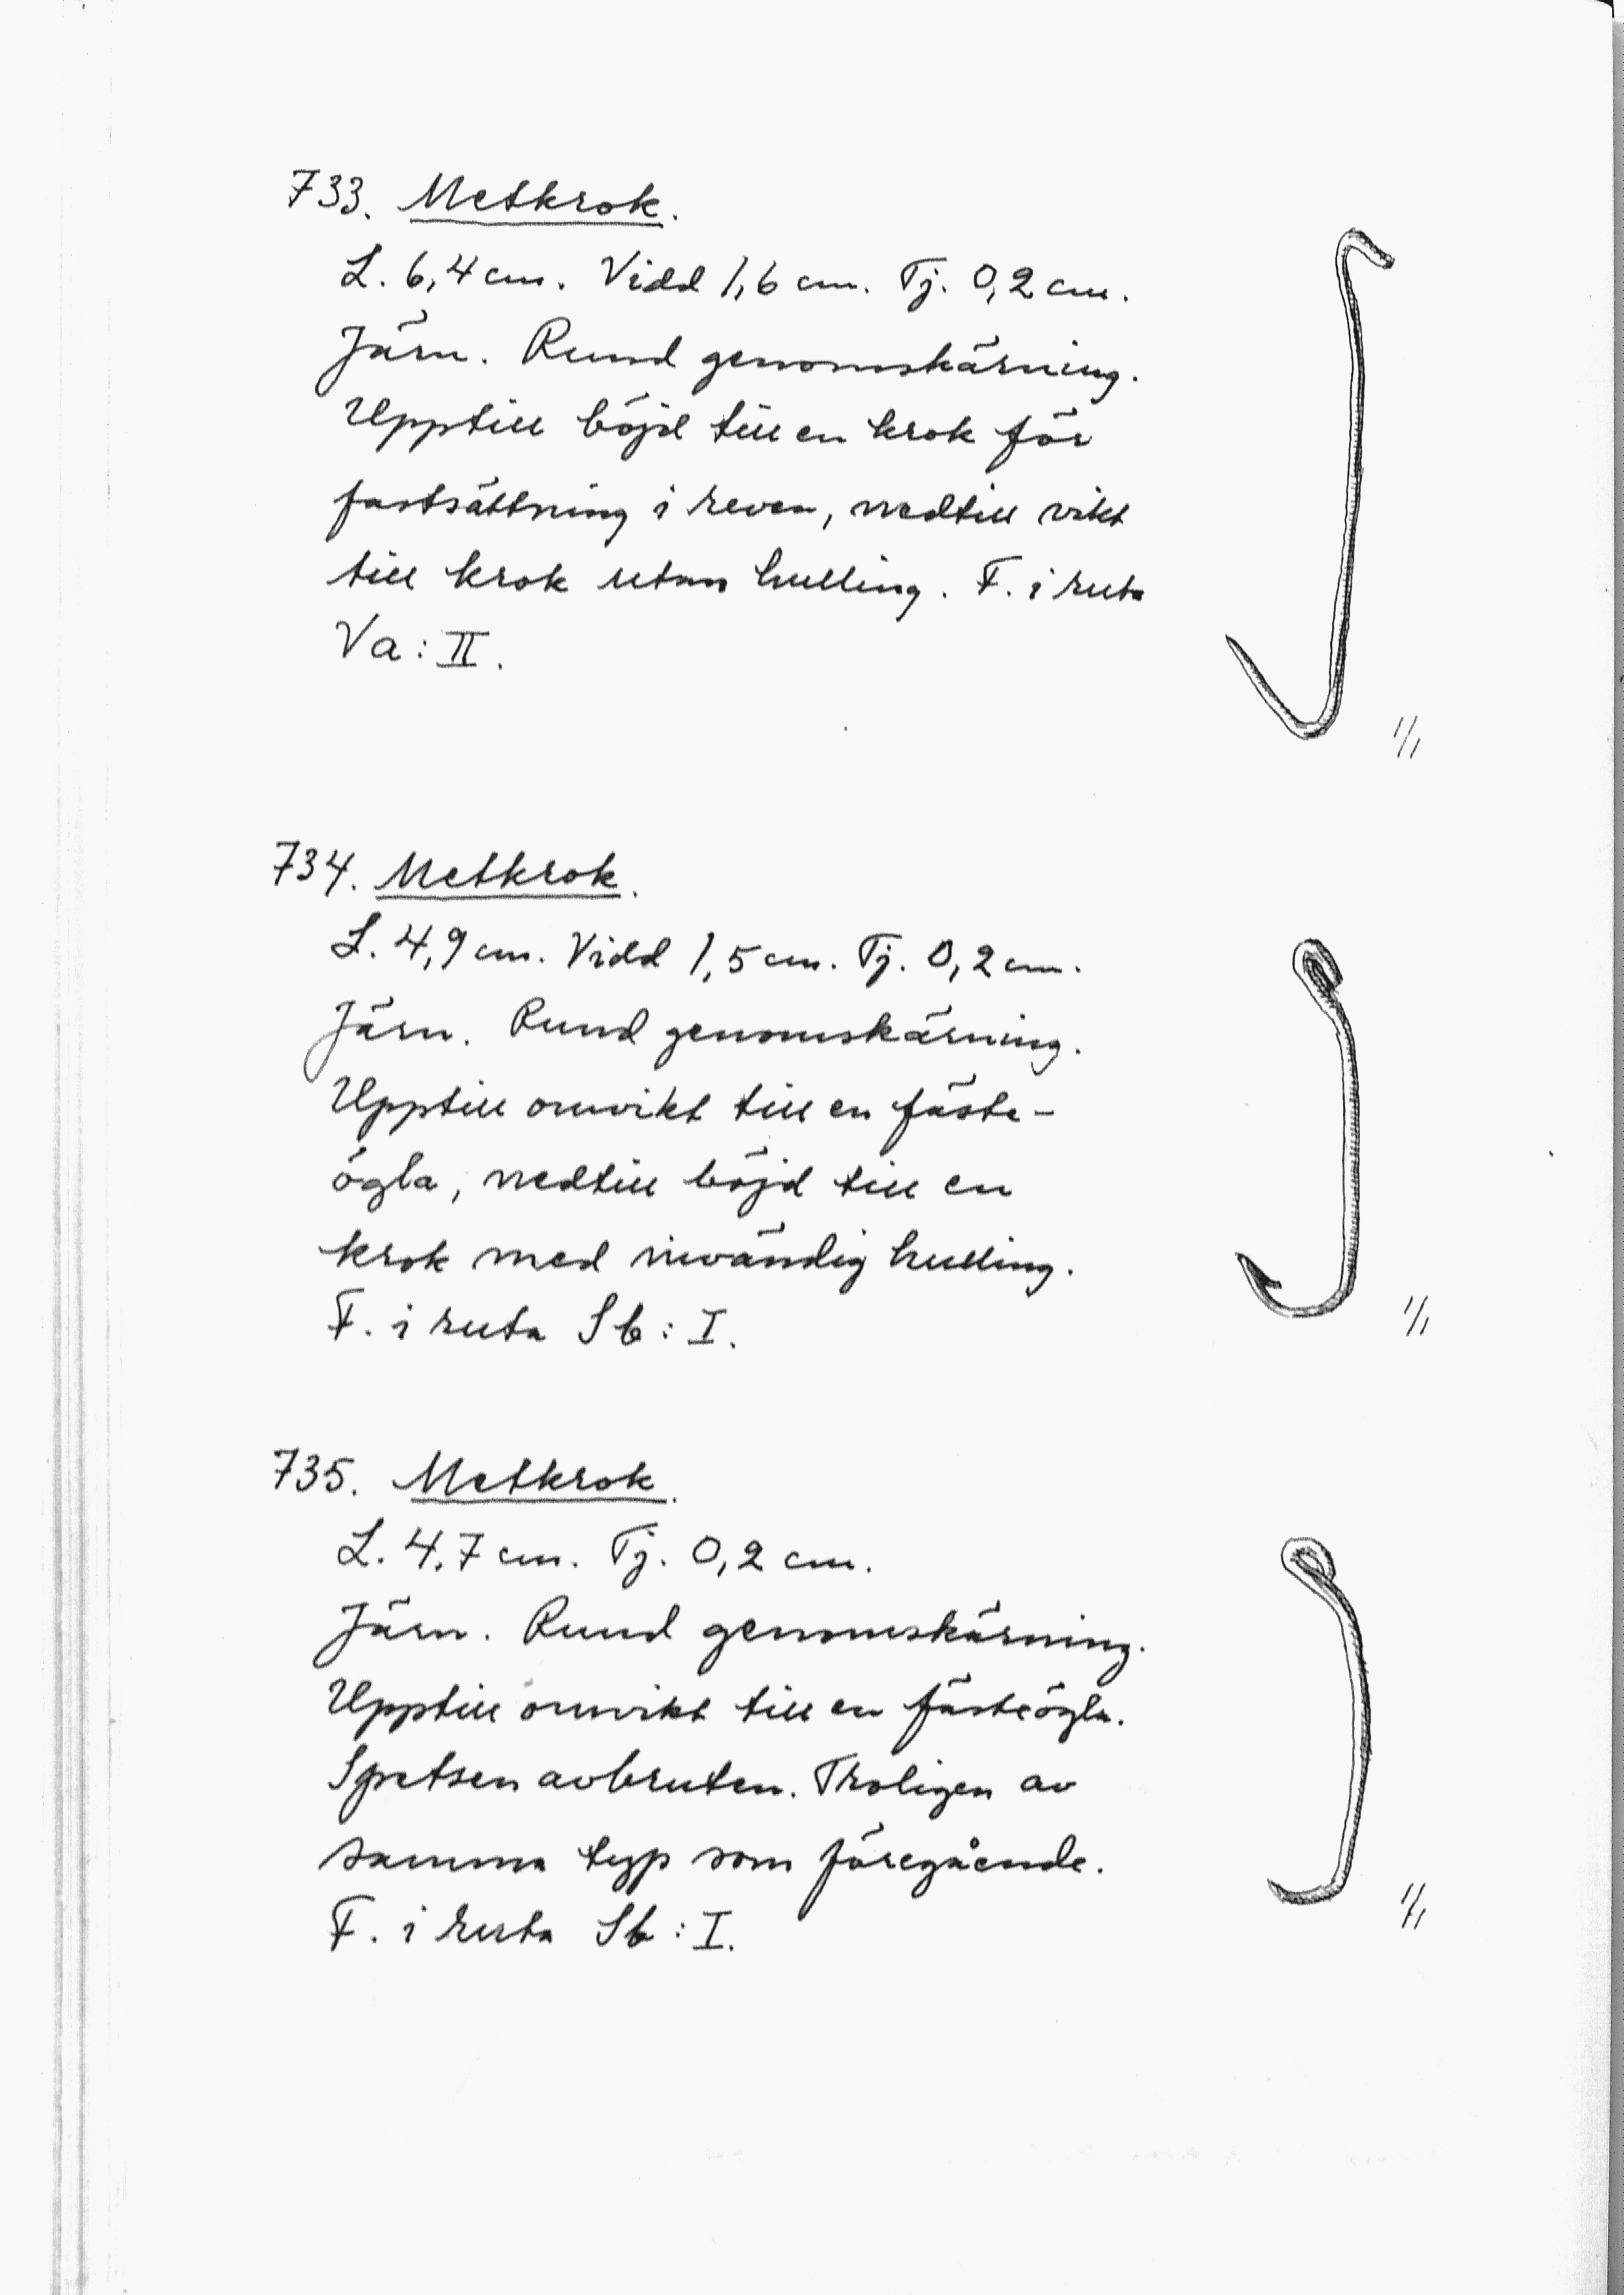 733. Metkrok.
L. 6,4 cm. Vidd 1,6 cm. Tj. 0,2 cm.
Järn. Rund genomskärning.
Upptill böjd till en krok för
fastsättning i reven, nedtill vikt
till krok utan hulling. F. i ruta
Va: II.
1/1
734. Metkrok.
L. 4,9 cm. Vidd 1,5 cm. Tj. 0,2 cm.
Järn. Rund genomskärning.
Upptill omvikt till en fäste-
ögla, nedtill böjd till en
krok med invändig hulling.
F. i ruta Sb: I.
1/1
735. Metkrok.
L. 4,7 cm. Tj. 0,2 cm.
Järn. Rund genomskärning.
Upptill omvikt till en fästeögla.
Spetsen avbruten. Troligen av
samma typ som föregående.
F. i ruta Sb: I.
1/1